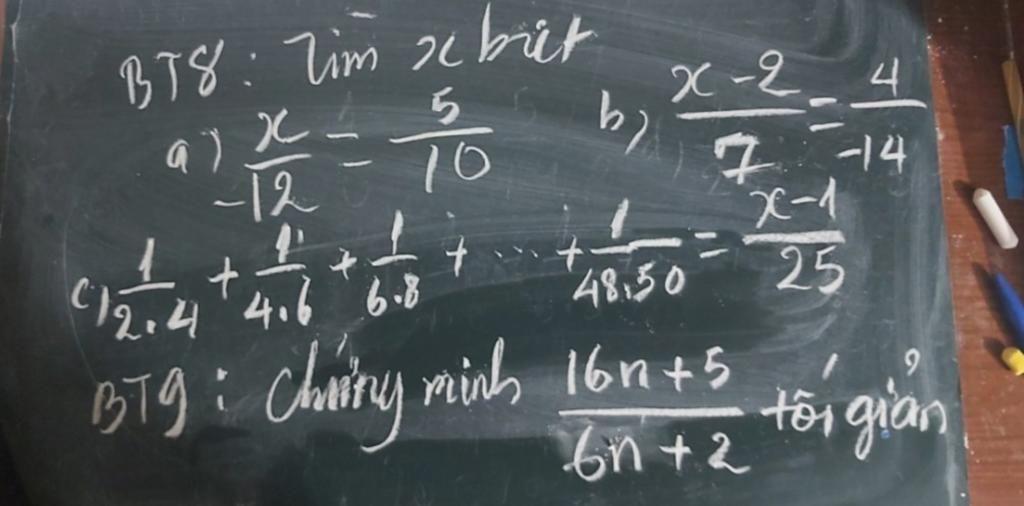 BT8: Tìm x biết
a) x/-12 = 5/10 b) x-2/7 = 4/-14
c) 1/2.4 + 1/4.6 + 1/6.8 + ... + 1/48.50 = x-1/25
BT9: Chứng minh 16n+5/6n+2 tối giản